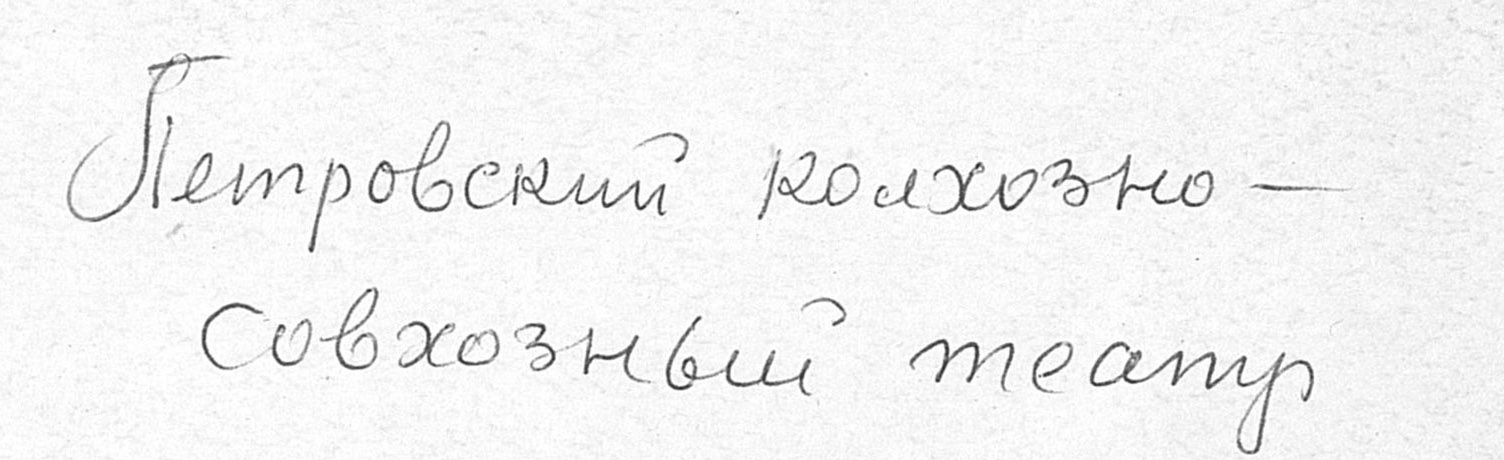 Петровский колхозно —
совхозный театр